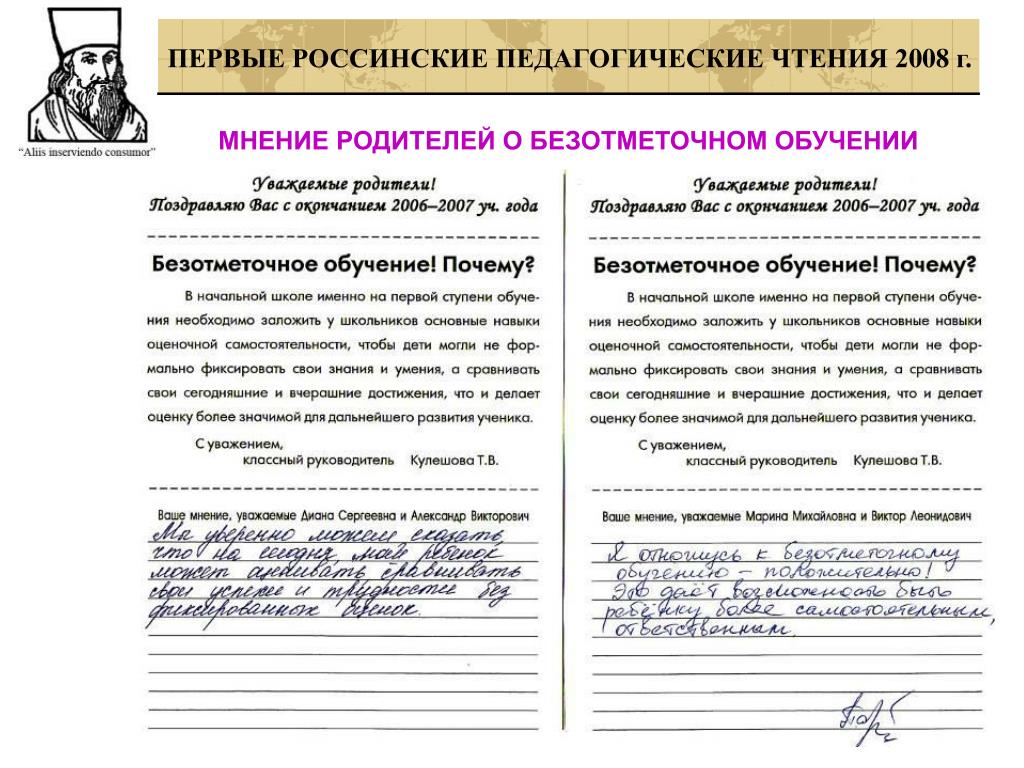 ПЕРВЫЕ РОССИНСКИЕ ПЕДАГОГИЧЕСКИЕ ЧТЕНИЯ 2008 г.
“Aliis inserviendo consumor”
МНЕНИЕ РОДИТЕЛЕЙ О БЕЗОТМЕТОЧНОМ ОБУЧЕНИИ
Уважаемые родители!
Поздравляю Вас с окончанием 2006–2007 уч. года
Безотметочное обучение! Почему?
В начальной школе именно на первой ступени обуче-
ния необходимо заложить у школьников основные навыки
оценочной самостоятельности, чтобы дети могли не фор-
мально фиксировать свои знания и умения, а сравнивать
свои сегодняшние и вчерашние достижения, что и делает
оценку более значимой для дальнейшего развития ученика.
С уважением,
классный руководитель Кулешова Т.В.
Ваше мнение, уважаемые Диана Сергеевна и Александр Викторович
Мы уверенно можем сказать,
что на сегодня наш ребенок
может оценивать сравнивать
свои успехи и трудности без
фиксированных оценок.
Уважаемые родители!
Поздравляю Вас с окончанием 2006–2007 уч. года
Безотметочное обучение! Почему?
В начальной школе именно на первой ступени обуче-
ния необходимо заложить у школьников основные навыки
оценочной самостоятельности, чтобы дети могли не фор-
мально фиксировать свои знания и умения, а сравнивать
свои сегодняшние и вчерашние достижения, что и делает
оценку более значимой для дальнейшего развития ученика.
С уважением,
классный руководитель Кулешова Т.В.
Ваше мнение, уважаемые Марина Михайловна и Виктор Леонидович
Я отношусь к безотметочному
обучению – положительно!
Это даёт возможность быть
ребёнку более самостоятельным,
ответственным.